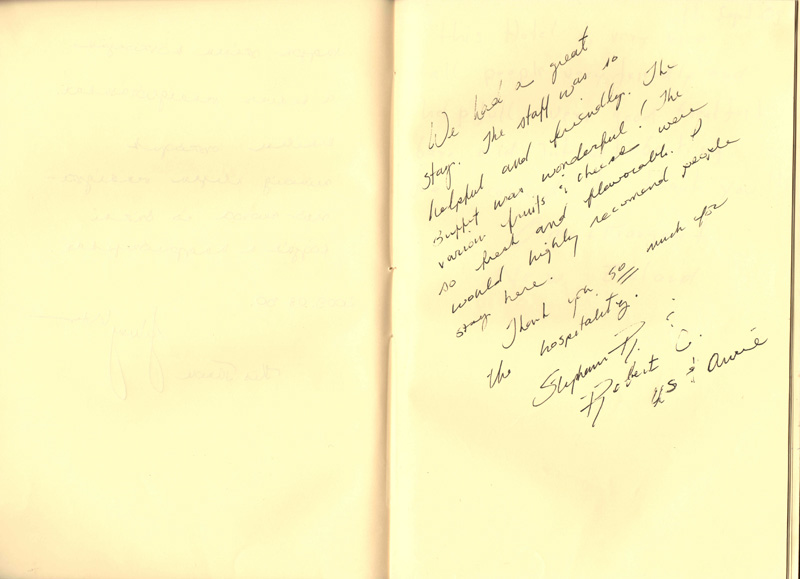 We had a great
stay. The staff was so
helpful and friendly. The
Buffet was wonderful! The
various fruits & cheese were
so fresh and flavorable. I
would highly recomend people
stay here.
Thank you so much for
the hospitality.
Stephanie R. &
Robert C.
US &